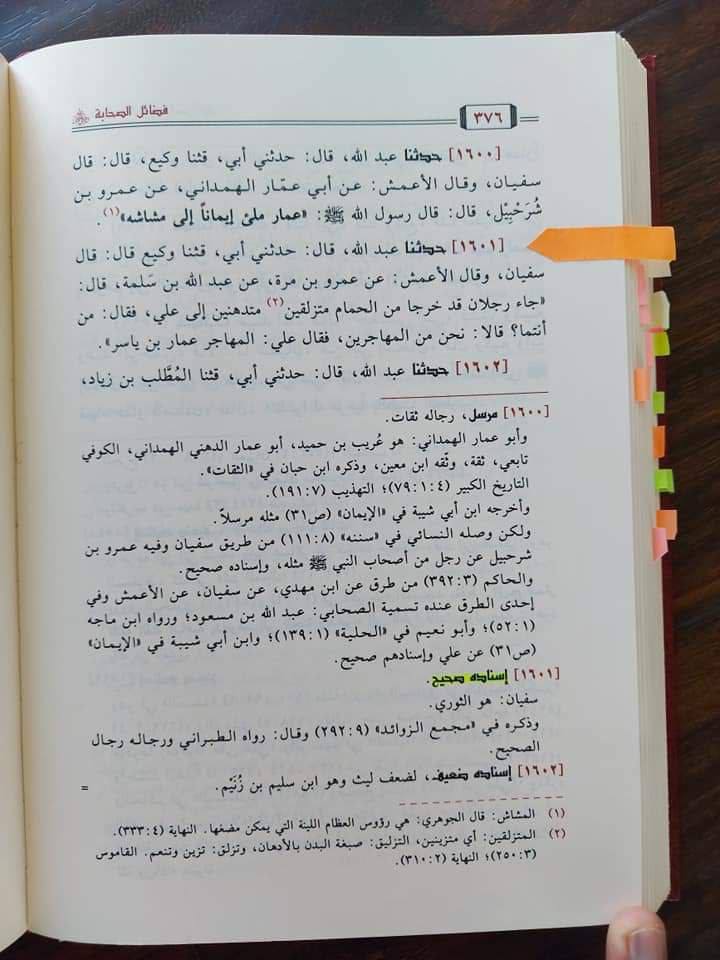 فضائل الصحابة
٣٧٦
[١٦٠٠] حدثنا عبد الله، قال: حدثني أبي، قثنا وكيع، قال: قال
سفيان، وقال الأعمش: عن أبي عمّار الهمداني، عن عمرو بن
شُرَحْبِيْل، قال: قال رسول الله ﷺ: «عمار ملئ إيماناً إلى مشاشه»(١).
[١٦٠١] حدثنا عبد الله، قال: حدثني أبي، قثنا وكيع قال: قال
سفيان، وقال الأعمش: عن عمرو بن مرة، عن عبد الله بن سَلمة، قال:
«جاء رجلان قد خرجا من الحمام متزلقين(٢) متدهنين إلى علي، فقال: من
أنتما؟ قالا: نحن من المهاجرين، فقال علي: المهاجر عمار بن ياسر».
[١٦٠٢] حدثنا عبد الله، قال: حدثني أبي، قثنا المُطَّلب بن زياد،
[١٦٠٠] مرسل، رجاله ثقات.
وأبو عمار الهمداني: هو عُريب بن حميد، أبو عمار الدهني الهمداني، الكوفي
تابعي، ثقة، وثّقه ابن معين، وذكره ابن حبان في «الثقات».
التاريخ الكبير (٧٩:١:٤)؛ التهذيب (١٩١:٧).
وأخرجه ابن أبي شيبة في «الإيمان» (ص٣١) مثله مرسلاً.
ولكن وصله النسائي في «سننه» (١١١:٨) من طريق سفيان وفيه عمرو بن
شرحبيل عن رجل من أصحاب النبي ﷺ مثله، وإسناده صحيح.
والحاكم (٣٩٢:٣) من طرق عن ابن مهدي، عن سفيان، عن الأعمش وفي
إحدى الطرق عنده تسمية الصحابي: عبد الله بن مسعود؛ ورواه ابن ماجه
(٥٢:١)؛ وأبو نعيم في «الحلية» (١٣٩:١)؛ وابن أبي شيبة في «الإيمان»
(ص٣١) عن علي وإسنادهم صحيح.
[١٦٠١] إسناده صحيح.
سفيان: هو الثوري.
وذكره في «مجمع الزوائد» (٢٩٢:٩) وقال: رواه الطبراني ورجاله رجال
الصحيح.
[١٦٠٢] إسناده ضعيف، لضعف ليث وهو ابن سليم بن زُنَيْم.
=
(١) المشاش: قال الجوهري: هي رؤوس العظام اللينة التي يمكن مضغها. النهاية (٣٣٣:٤).
(٢) المتزلقين: أي متزينين، التزليق: صبغة البدن بالأدهان، وتزلق: تزين وتنعم. القاموس
(٢٥٠:٣)؛ النهاية (٣١٠:٢).